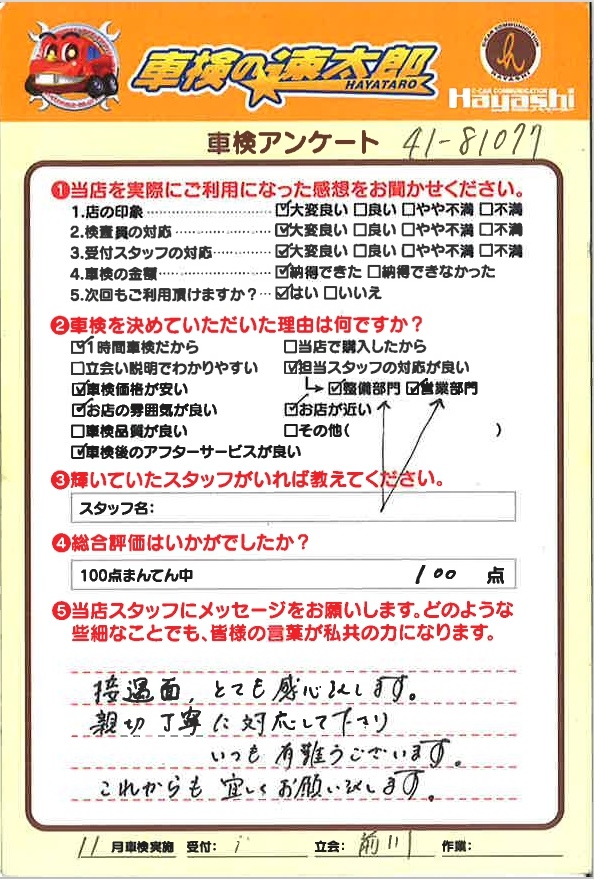 車検の速太郎
HAYATARO
E-CAR COMMUNICATION
h
HAYASHI
E-CAR COMMUNICATION
Hayashi
車検アンケート 41-81077
❶当店を実際にご利用になった感想をお聞かせください。
1.店の印象 ☑大変良い □良い □やや不満 □不満
2.検査員の対応 ☑大変良い □良い □やや不満 □不満
3.受付スタッフの対応 ☑大変良い □良い □やや不満 □不満
4.車検の金額 ☑納得できた □納得できなかった
5.次回もご利用頂けますか？ ☑はい □いいえ
❷車検を決めていただいた理由は何ですか？
☑1時間車検だから □当店で購入したから
□立会い説明でわかりやすい ☑担当スタッフの対応が良い
☑車検価格が安い ☑整備部門 ☑営業部門
☑お店の雰囲気が良い ☑お店が近い
□車検品質が良い □その他( )
☑車検後のアフターサービスが良い
❸輝いていたスタッフがいれば教えてください。
スタッフ名:
❹総合評価はいかがでしたか？
100点まんてん中 100 点
❺当店スタッフにメッセージをお願いします。どのような
些細なことでも、皆様の言葉が私共の力になります。
接遇面、とても感心致します。
親切丁寧に対応して下さり
いつも有難うございます。
これからも宜しくお願い致します。
11 月車検実施 受付: i 立会: 前川 作業: